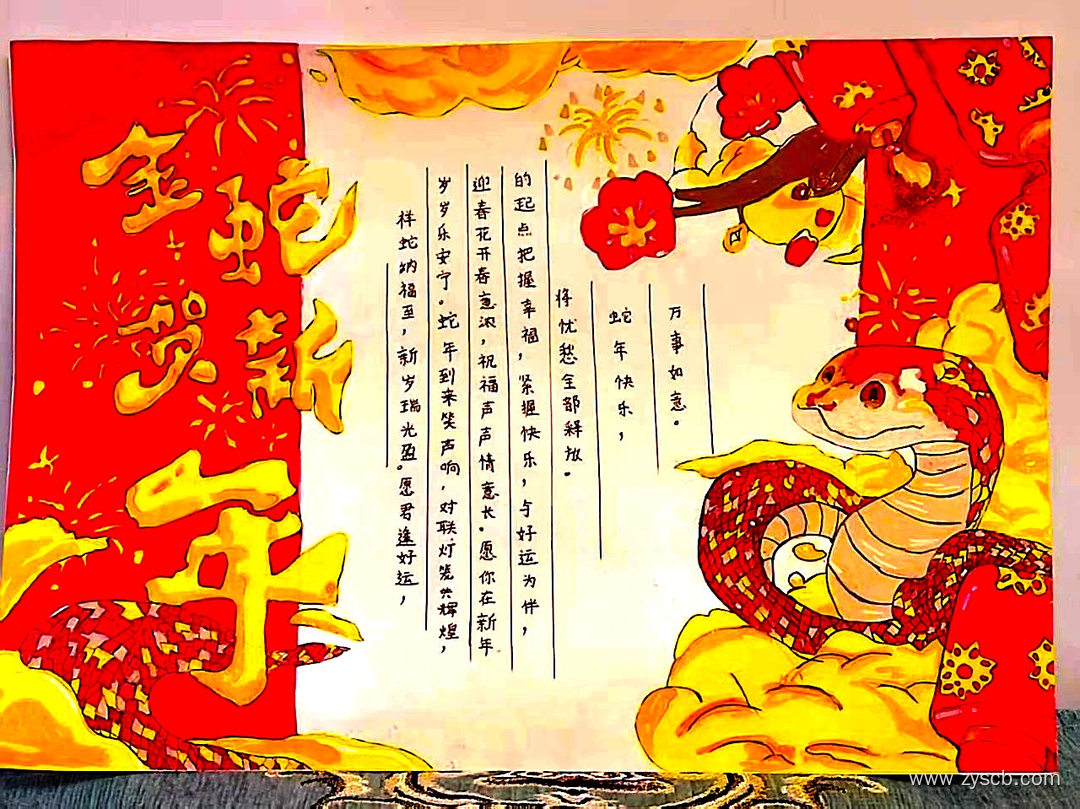 金蛇
贺新
年
祥蛇纳福至，新岁瑞光盈。愿君逢好运，
岁岁乐安宁。蛇年到来笑声响，对联灯笼共辉煌，
迎春花开春意浓，祝福声声情意长。愿你在新年
的起点把握幸福，紧握快乐，与好运为伴，
将忧愁全部释放。
蛇年快乐，
万事如意。
www.zyscb.com